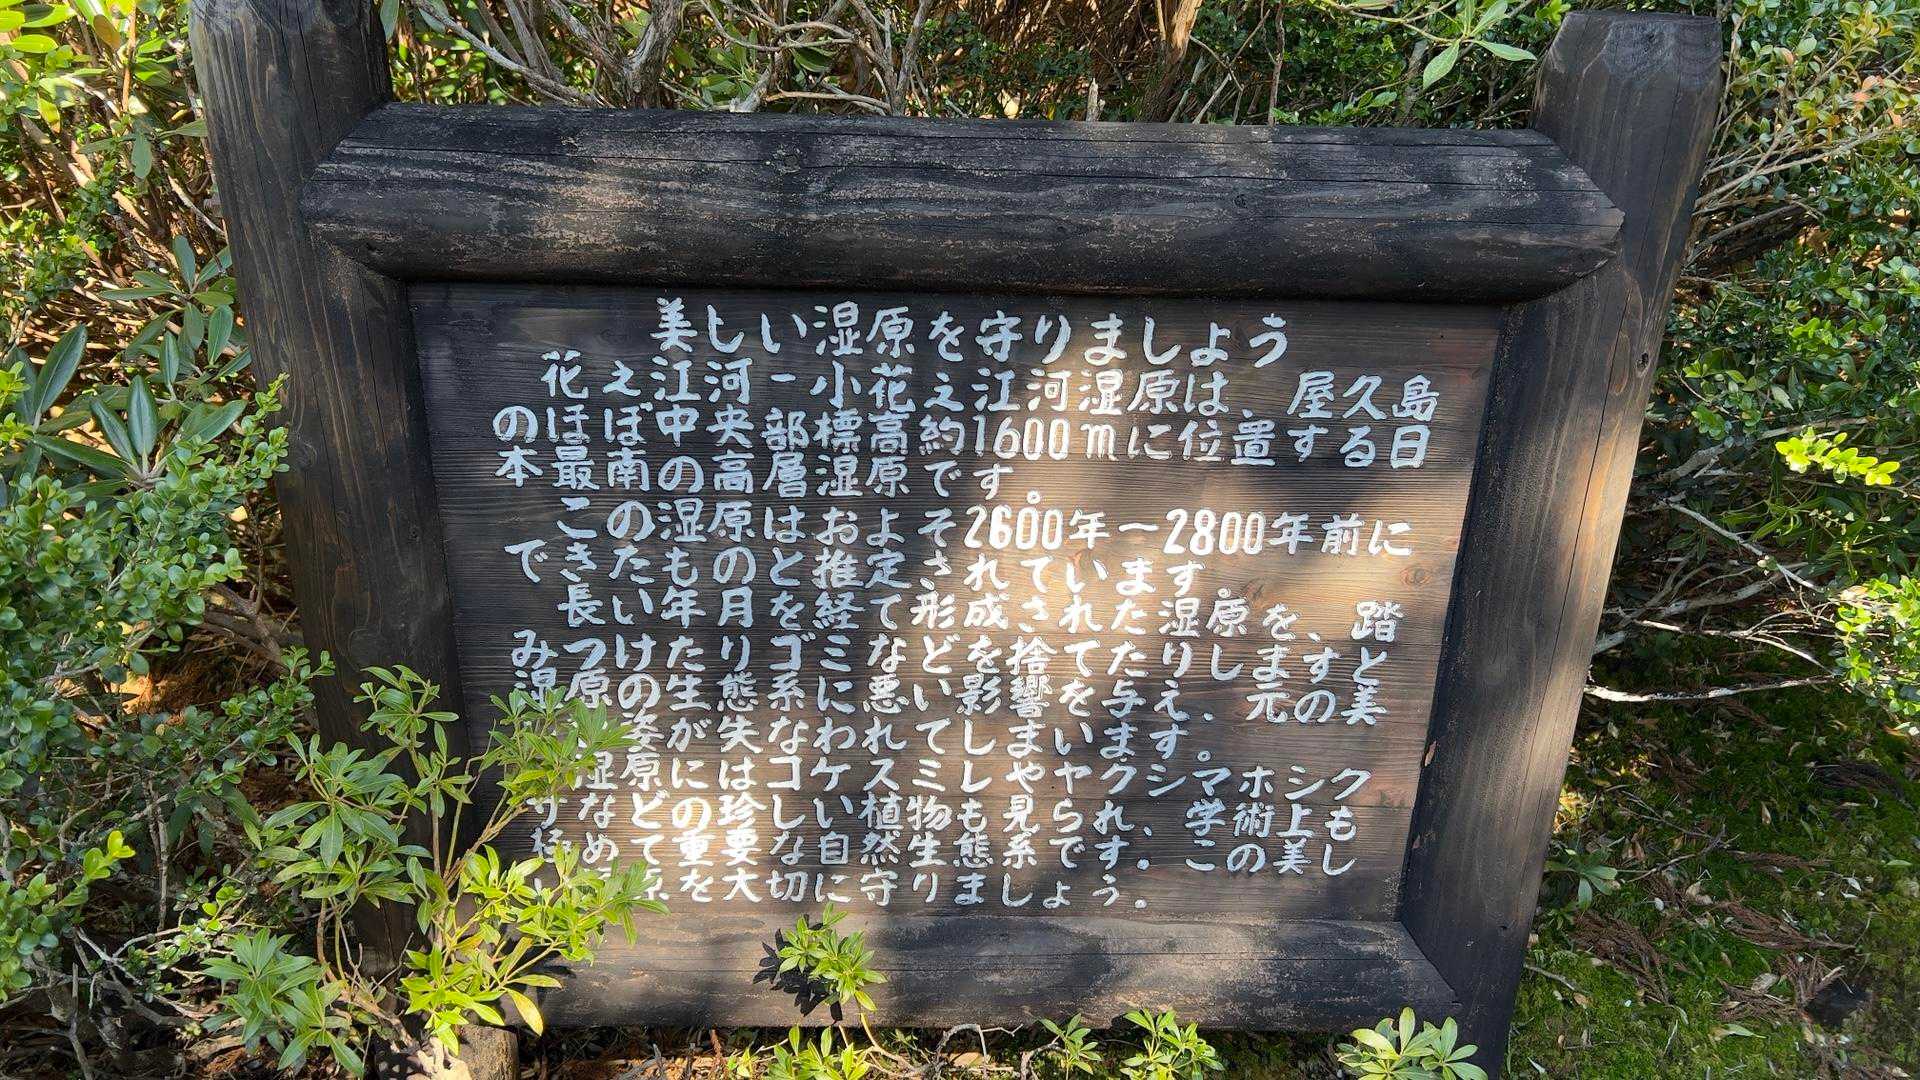 美しい湿原を守りましょう
花え江河－小花え江河湿原は、屋久島
のほぼ中央部標高約1600mに位置する日
本最南の高層湿原です。
この湿原はおよそ2600年～2800年前に
できたものと推定されています。
長い年月を経て形成された湿原を、踏
みつけたりゴミなどを捨てたりしますと
湿原の生態系に悪い影響を与え、元の美
姿が失なわれてしまいます。
湿原にはコケスミレやヤクシマホシク
サなどの珍しい植物も見られ、学術上も
極めて重要な自然生態系です。この美し
い 原を大切に守りましょう。